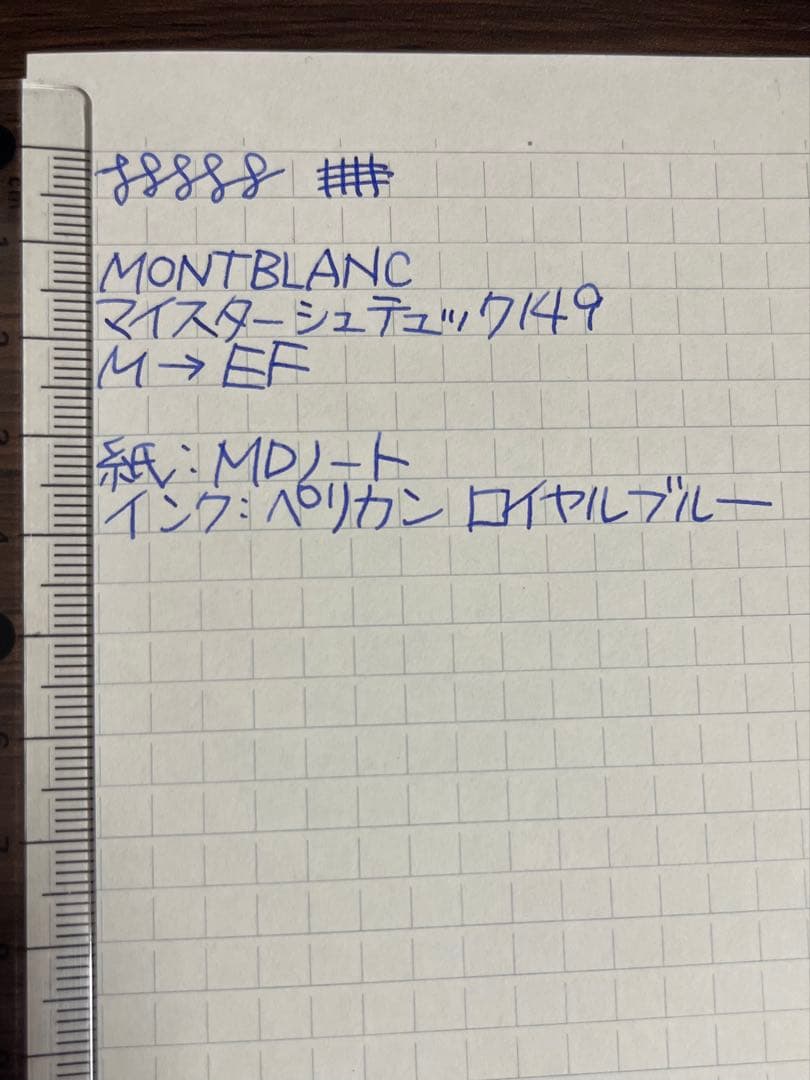 MONTBLANC
マイスターシュテュック149
M→EF
紙:MDノート
インク:ペリカン ロイヤルブルー